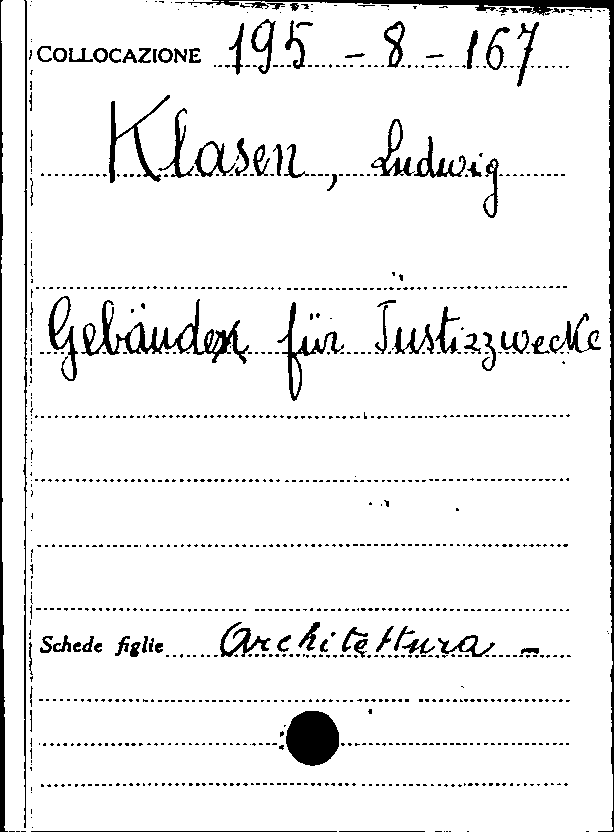 COLLOCAZIONE 195 - 8 - 167
Klasen, Ludwig
Gebäude für Justizzwecke
Schede figlie Architettura -